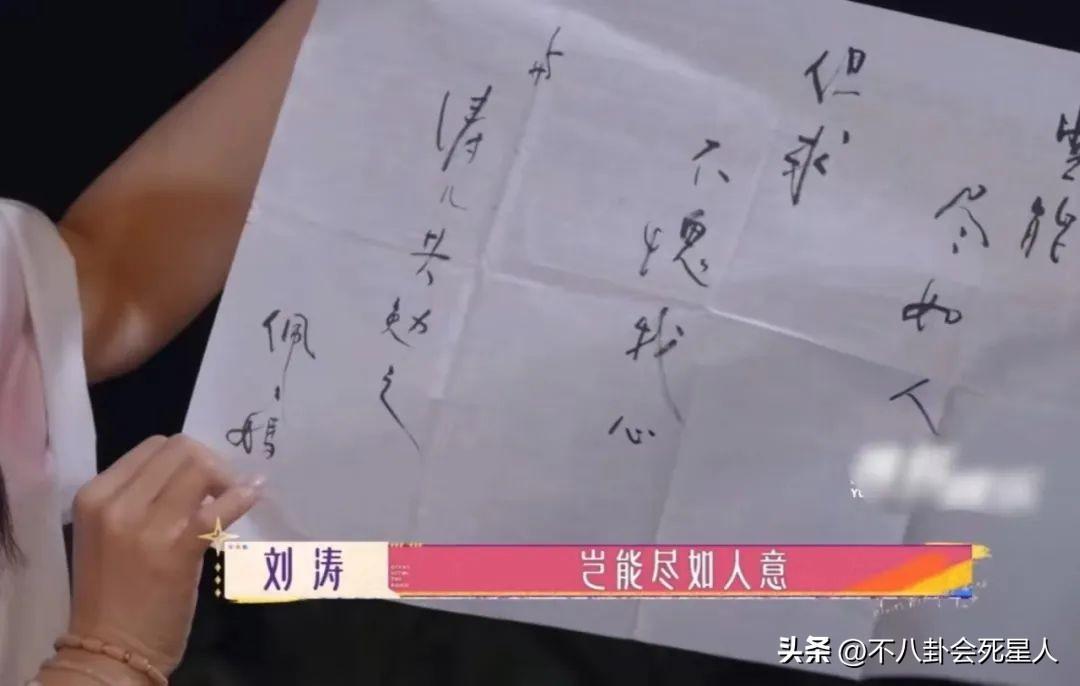 岂能
尽如人
但求
不愧我心
与
涛儿共勉之
佩〻妈
刘涛 岂能尽如人意
头条 @不八卦会死星人